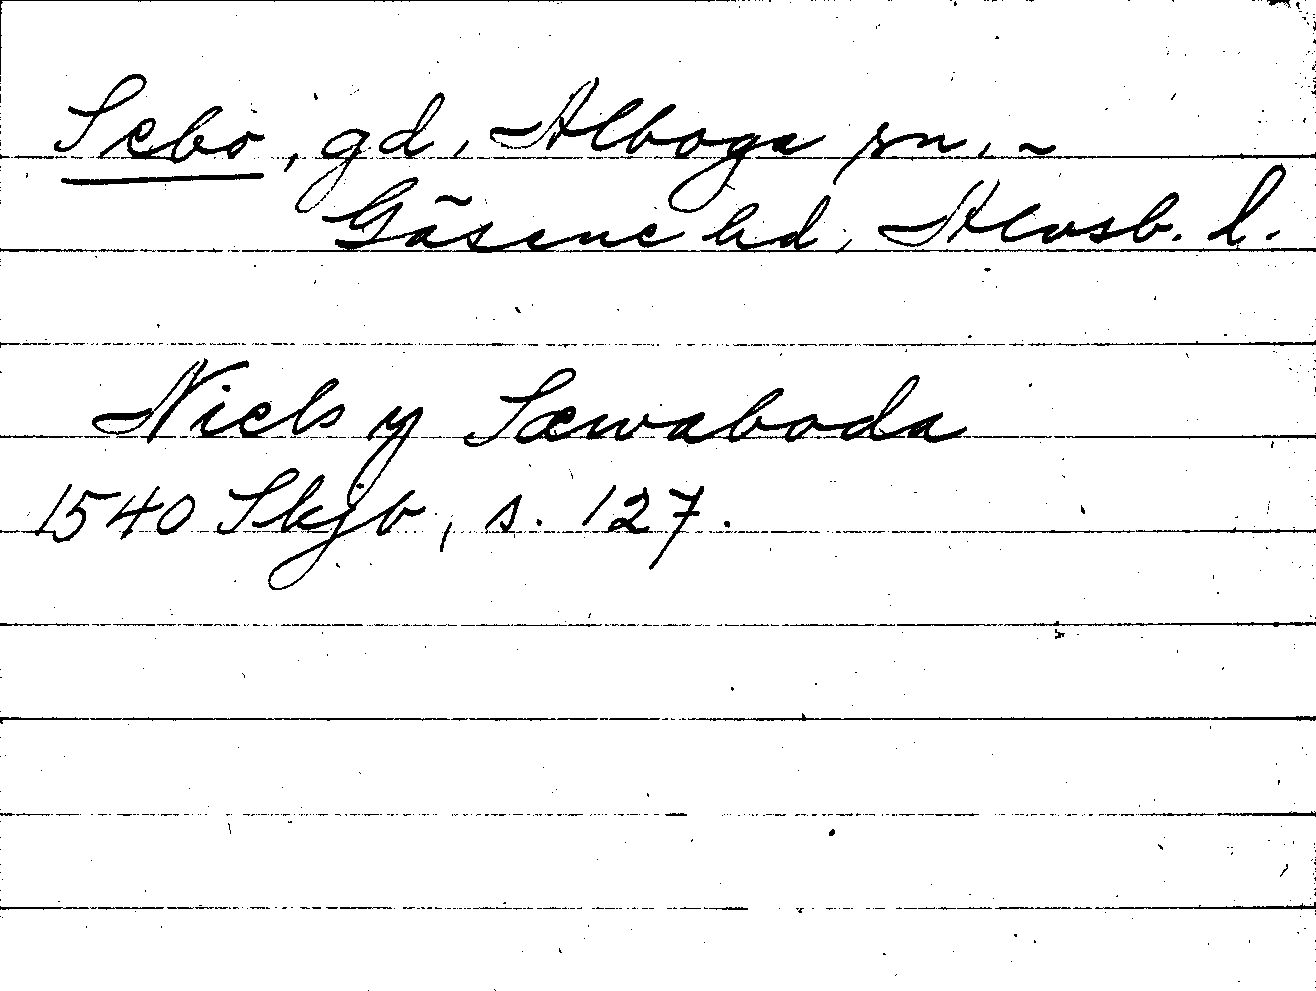 Sebo, gd, Alboga sn, ~
Gäsene hd, Älvsb. l.
Niels y Sæwaboda
1540 Skjb, s. 127.